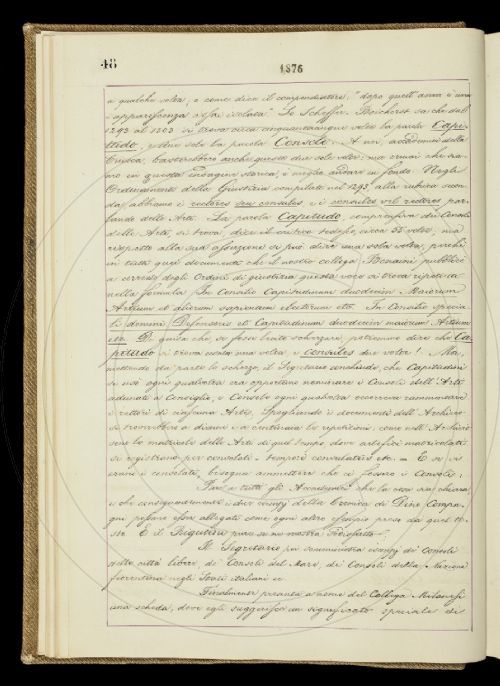 48
1876
a qualche volta; e come dice il compendiatore, "dopo quell'anno è una
apparescenza a far isolata." Lo Scheffer Boichorst sa che dal
1293 al 1303 si trova circa cinquantacinque volte la parola Capi-
tudo, e due sole la parola Console. A noi, accademici della
Crusca, basterebbero anche queste due sole volte; ma ormai che sia-
mo in questa indagine storica, è meglio andare in fondo. Negli
Ordinamenti della Giustizia compilati nel 1293, alla rubrica secon-
da abbiamo i rectores sive consules, e i consules vel rectores par-
lando delle Arti. La parola Capitudo, comprensiva dei Consoli
delle Arti, si trova, dice il critico tedesco, circa 55 volte; ma
rispetto alla sua asserzione si può dire una sola volta, perchè
in tutti quei documenti che il nostro collega Bonaini pubblicò
a corredo degli Ordini di giustizia questa voce si trova ripetuta
nella formula In Consilio Capitudinum duodecim Maiorum
Artium et aliorum sapientum electorum etc. In Consilio specia-
li domini Defensoris et Capitudinum duodecim maiorum Artium
etc. Di guisa che se fosse lecito scherzare, potremmo dire che Ca-
pitudo si trova una volta, e Consules due volte! Ma,
mettendo da parte lo scherzo, il Segretario conchiude, che Capitudini
si usò ogni qualvolta era opportuno nominare i Consoli dell'Arti
adunati a Consiglio, e Consolo ogni qualvolta occorreva rammentare
i rettori di ciascuna Arte. Spogliando i documenti dell'Archivio
si troverebbero a diecine e a centinaia le ripetizioni come nell'Archivio
sono le matricole delle Arti di quel tempo, dove artefici matricolati
si registrano per consolati - tempore consulatus etc. - E se vi
erano i consolati, bisogna ammettere che ci fossero i Consoli.
Pare a tutti gli Accademici che la cosa sia chiara
e che conseguentemente i due esempj della Cronica di Dino Compa-
gni possano esser allegati come ogni altro esempio preso da quel te-
sto. E il Rigutini pure se ne mostra
Il Segretario poi somministra esempj di Consoli
delle città libere, di Consoli del Mare, di Consoli della Nazione
fiorentina negli Stati italiani ec
Finalmente presenta a nome del Collega Milanesi
una scheda, dove egli suggerisce un significato speciale di